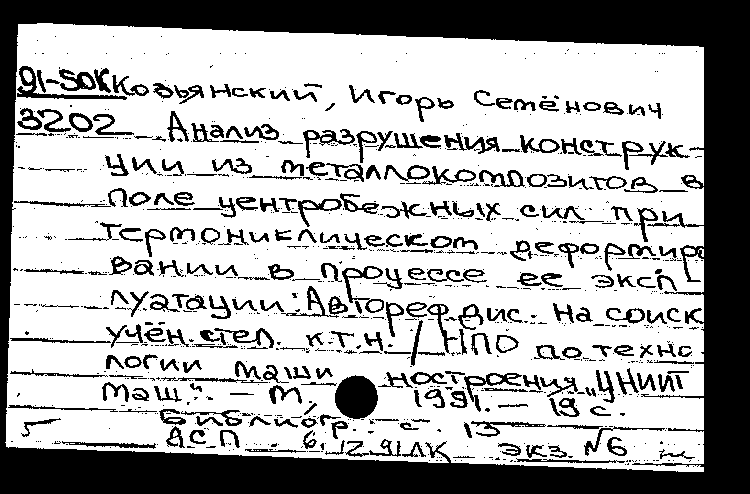 91-50К Козьянский, Игорь Семёнович
3202 Анализ разрушения конструк-
ции из металлокомпозитов в
поле центробежных сил при
термоциклическом деформиро
вании в процессе ее эксп-
луатации: Автореф. дис. на соиск
учён. степ. к.т.н. / НПО по техно
логии машиностроения "ЦНИИТ
маш". – М., 1991. – 19 с.
Библиогр.: с. 13
5 АСП. 6.12.91 ЛК экз. №6